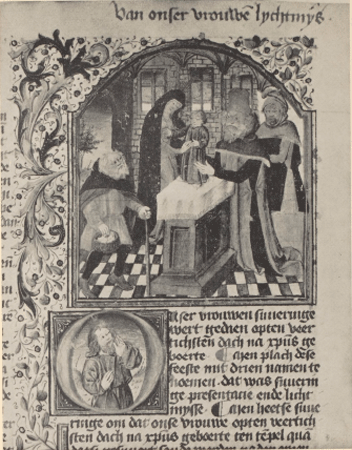 Van onser vrouwen lychtmys
Onser vrouwen suueringe
wert gedaen opten veer
tichsten dach na xpūs ge
boerte ¶ Men plach dese
feeste mit drien namen te
noemen. dat was suuerin
ge presentacie ende licht
mysse. ¶ Men heetse suue
ringe om dat onse vrouwe opten veertich
sten dach na xpūs geboerte ten tēpel quā